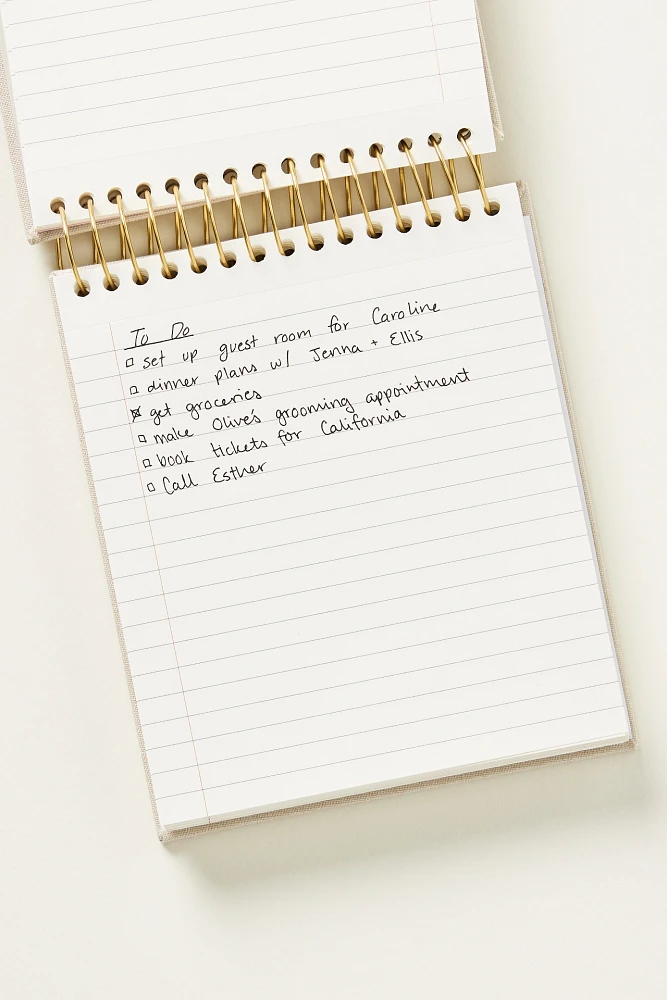 To Do
☐ set up guest room for Caroline
☐ dinner plans w/ Jenna + Ellis
☒ get groceries
☐ make Olive's grooming appointment
☐ book tickets for California
☐ Call Esther